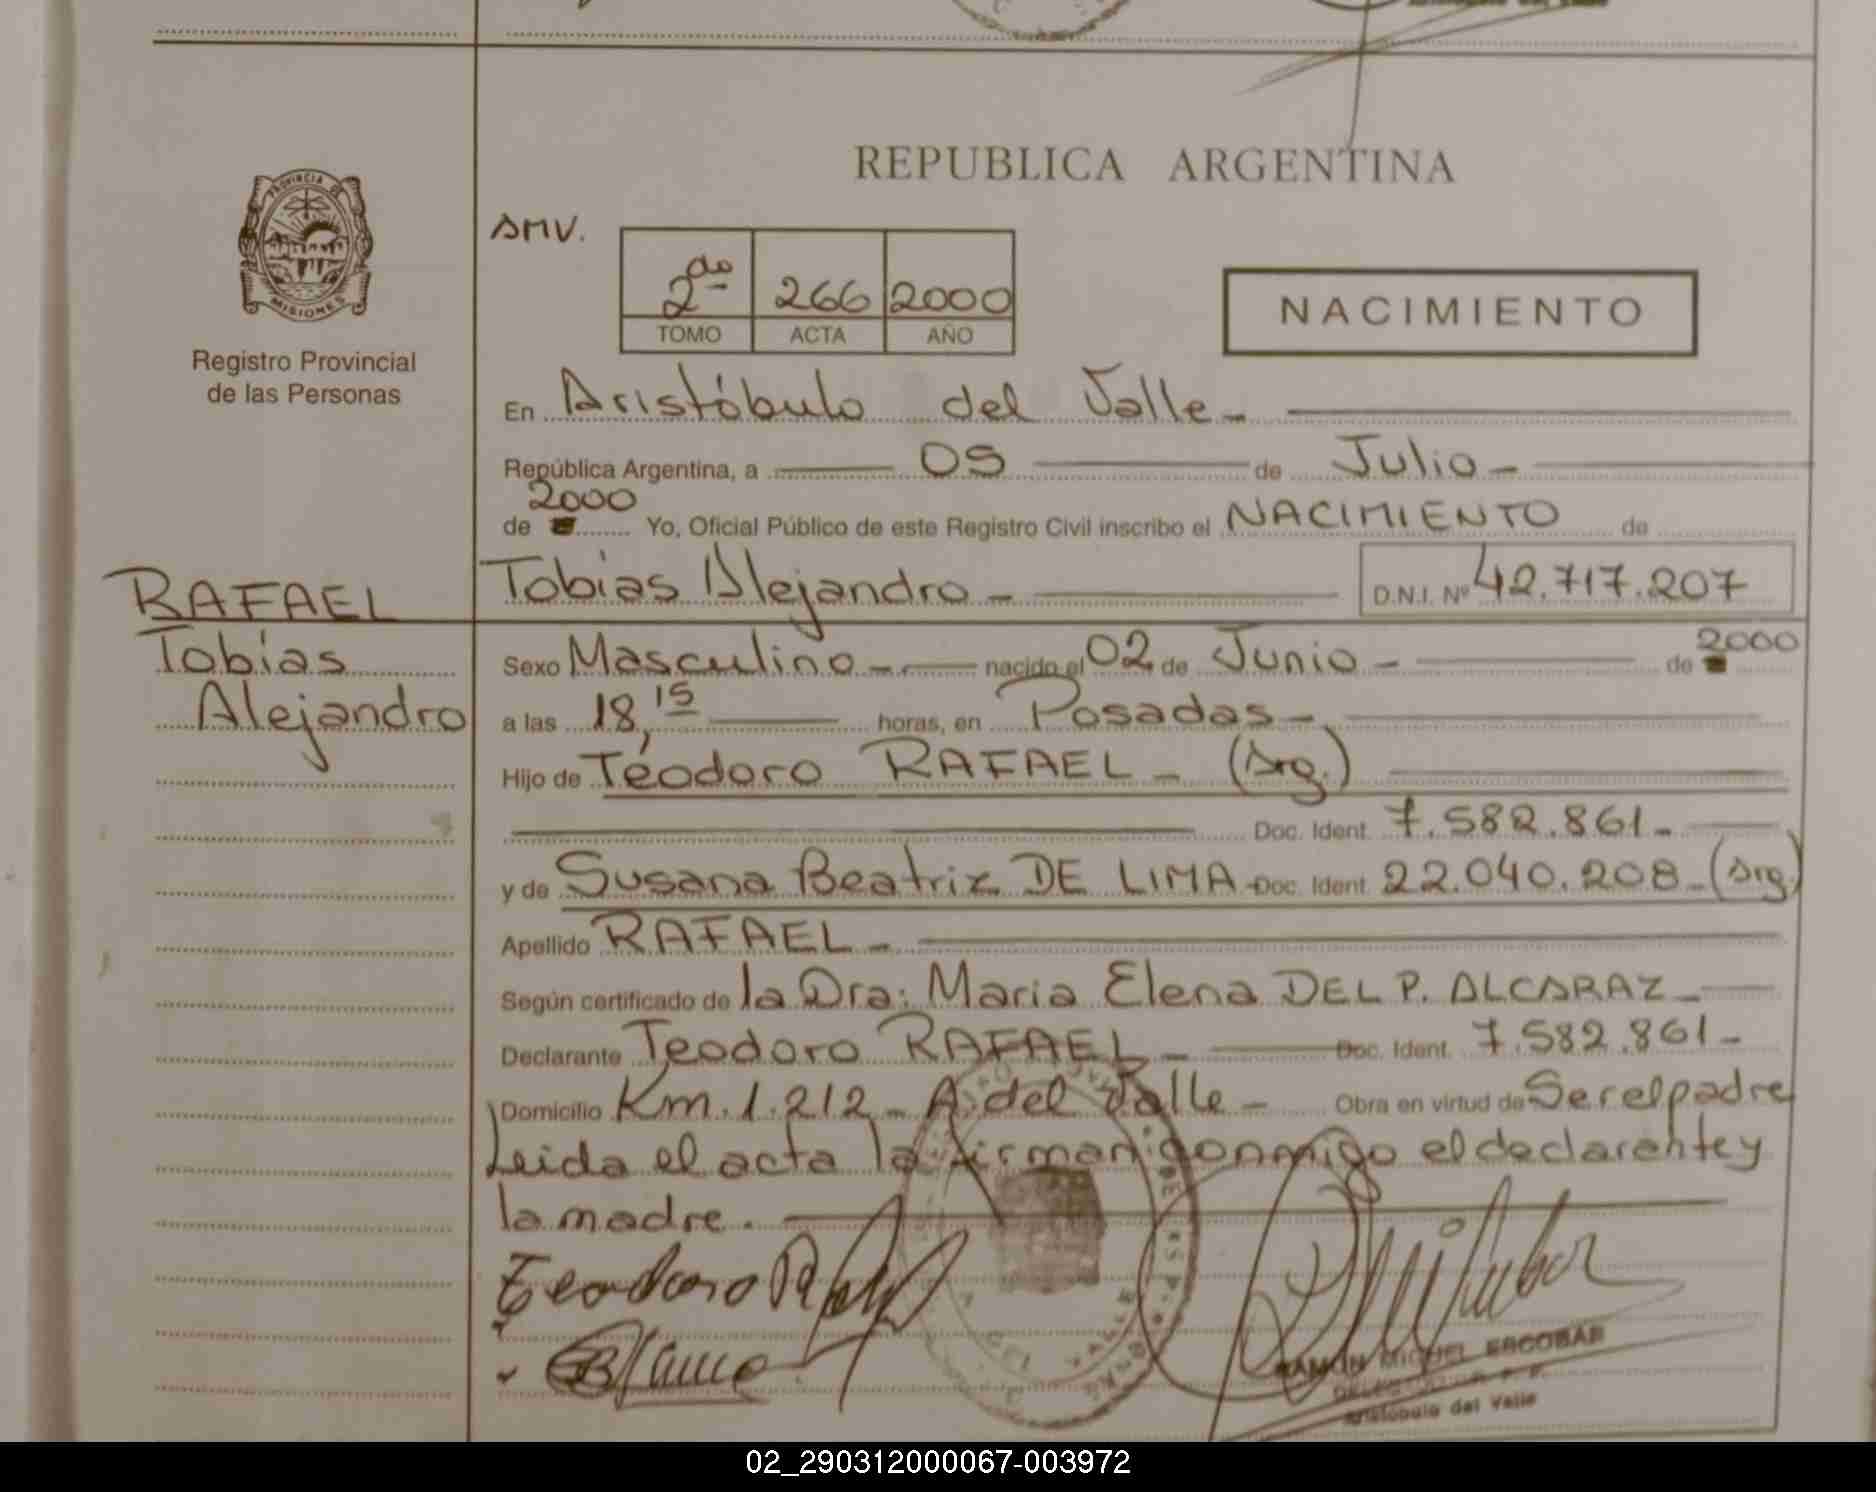 REPUBLICA ARGENTINA
PROVINCIA DE
MISIONES
Registro Provincial
de las Personas
AMV.
2do 266 2000
TOMO ACTA AÑO
NACIMIENTO
En Aristóbulo del Valle
República Argentina, a 05 de Julio
2000
de Yo, Oficial Público de este Registro Civil inscribo el NACIMIENTO de
RAFAEL
Tobias Alejandro
D.N.I. Nº 42.717.207
Tobías
Alejandro
Sexo Masculino nacido el 02 de Junio de 2000
a las 18,15 horas, en Posadas
Hijo de Teodoro RAFAEL (Arg.)
Doc. Ident. 7.582.861
y de Susana Beatriz DE LIMA Doc. Ident. 22.040.208 (Arg.)
Apellido RAFAEL
Según certificado de la Dra: Maria Elena DEL P. ALCARAZ
Declarante Teodoro RAFAEL Doc. Ident. 7.582.861
Domicilio Km. 1.212 A. del Valle Obra en virtud de Ser el padre
Leida el acta la firman conmigo el declarante y
la madre.
Teodoro
RAMON MIGUEL ESCOBAR
Aristobulo del Valle
02_290312000067-003972